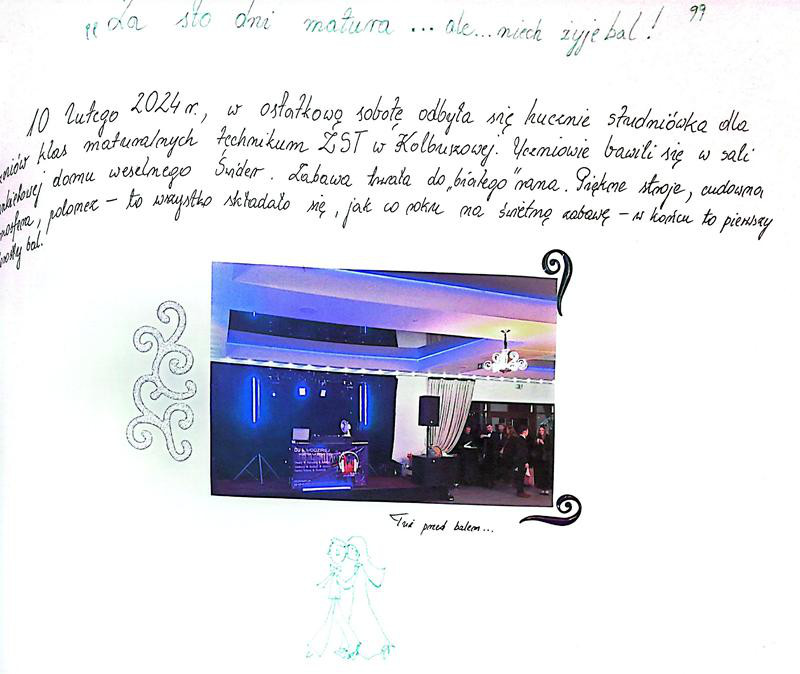 „Za sto dni matura ... ale... niech żyje bal! 99
10 lutego 2024 r., w ostatkową sobotę odbyła się hucznie studniówka dla
klas maturalnych technikum ZST w Kolbuszowej. Uczniowie bawili się w sali
domu weselnego Świder. Zabawa trwała do „białego" rana. Piękne stroje, cudowna
polonez – to wszystko składało się, jak co roku na świetną zabawę – w końcu to pierwszy
bal.
Tuż przed balem...